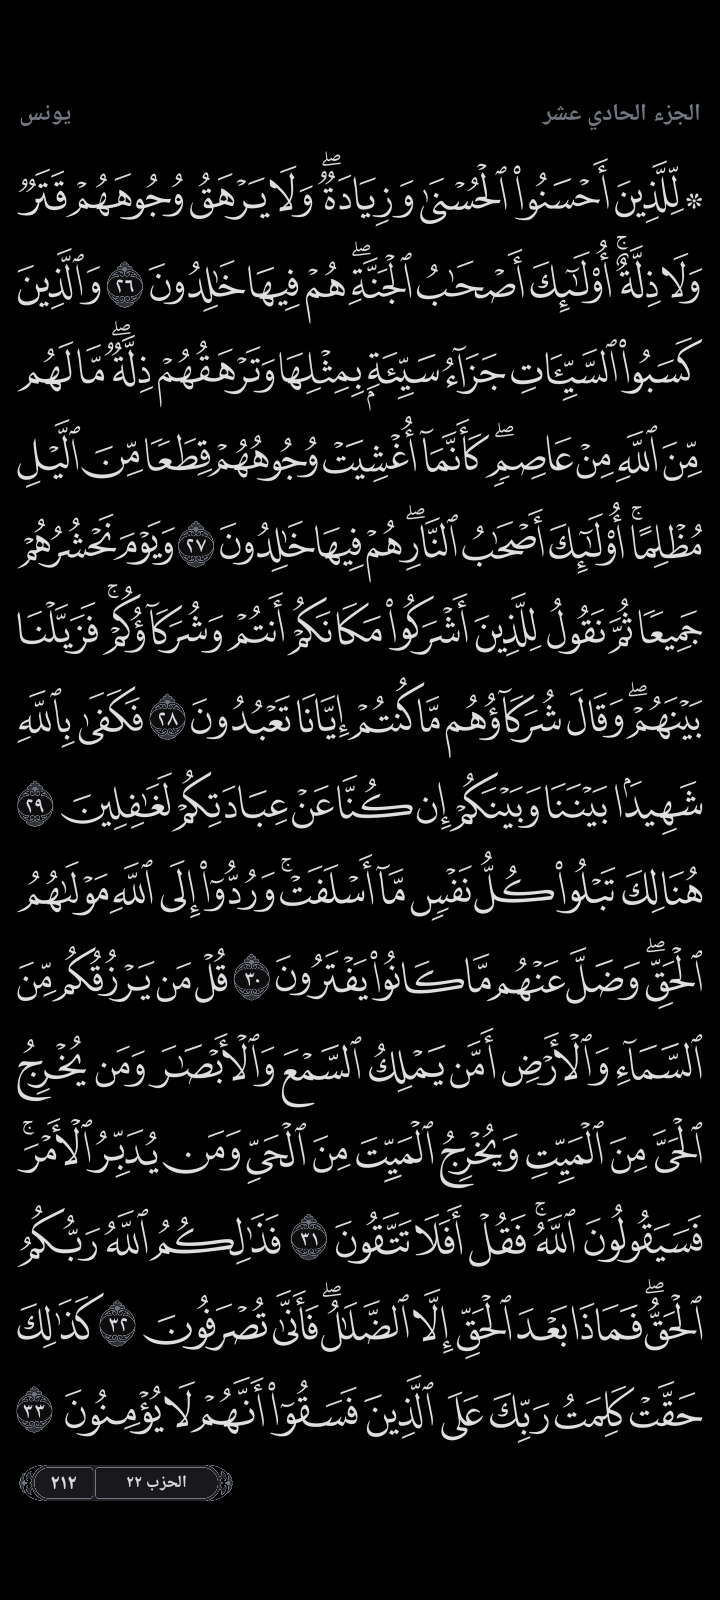 الجزء الحادي عشر
يونس
۞ لِّلَّذِينَ أَحْسَنُوا۟ ٱلْحُسْنَىٰ وَزِيَادَةٌ ۖ وَلَا يَرْهَقُ وُجُوهَهُمْ قَتَرٌ
وَلَا ذِلَّةٌ ۚ أُو۟لَـٰٓئِكَ أَصْحَـٰبُ ٱلْجَنَّةِ ۖ هُمْ فِيهَا خَـٰلِدُونَ ٢٦ وَٱلَّذِينَ
كَسَبُوا۟ ٱلسَّيِّـَٔاتِ جَزَآءُ سَيِّئَةٍۭ بِمِثْلِهَا وَتَرْهَقُهُمْ ذِلَّةٌ ۖ مَّا لَهُم
مِّنَ ٱللَّهِ مِنْ عَاصِمٍ ۖ كَأَنَّمَآ أُغْشِيَتْ وُجُوهُهُمْ قِطَعًا مِّنَ ٱلَّيْلِ
مُظْلِمًا ۚ أُو۟لَـٰٓئِكَ أَصْحَـٰبُ ٱلنَّارِ ۖ هُمْ فِيهَا خَـٰلِدُونَ ٢٧ وَيَوْمَ نَحْشُرُهُمْ
جَمِيعًا ثُمَّ نَقُولُ لِلَّذِينَ أَشْرَكُوا۟ مَكَانَكُمْ أَنتُمْ وَشُرَكَآؤُكُمْ ۚ فَزَيَّلْنَا
بَيْنَهُمْ ۖ وَقَالَ شُرَكَآؤُهُم مَّا كُنتُمْ إِيَّانَا تَعْبُدُونَ ٢٨ فَكَفَىٰ بِٱللَّهِ
شَهِيدًۢا بَيْنَنَا وَبَيْنَكُمْ إِن كُنَّا عَنْ عِبَادَتِكُمْ لَغَـٰفِلِينَ ٢٩
هُنَالِكَ تَبْلُوا۟ كُلُّ نَفْسٍ مَّآ أَسْلَفَتْ ۚ وَرُدُّوٓا۟ إِلَى ٱللَّهِ مَوْلَىٰهُمُ
ٱلْحَقِّ ۖ وَضَلَّ عَنْهُم مَّا كَانُوا۟ يَفْتَرُونَ ٣٠ قُلْ مَن يَرْزُقُكُم مِّنَ
ٱلسَّمَآءِ وَٱلْأَرْضِ أَمَّن يَمْلِكُ ٱلسَّمْعَ وَٱلْأَبْصَـٰرَ وَمَن يُخْرِجُ
ٱلْحَىَّ مِنَ ٱلْمَيِّتِ وَيُخْرِجُ ٱلْمَيِّتَ مِنَ ٱلْحَىِّ وَمَن يُدَبِّرُ ٱلْأَمْرَ ۚ
فَسَيَقُولُونَ ٱللَّهُ ۚ فَقُلْ أَفَلَا تَتَّقُونَ ٣١ فَذَٰلِكُمُ ٱللَّهُ رَبُّكُمُ
ٱلْحَقُّ ۖ فَمَاذَا بَعْدَ ٱلْحَقِّ إِلَّا ٱلضَّلَـٰلُ ۖ فَأَنَّىٰ تُصْرَفُونَ ٣٢ كَذَٰلِكَ
حَقَّتْ كَلِمَتُ رَبِّكَ عَلَى ٱلَّذِينَ فَسَقُوٓا۟ أَنَّهُمْ لَا يُؤْمِنُونَ ٣٣
الحزب ٢٢
٢١٢